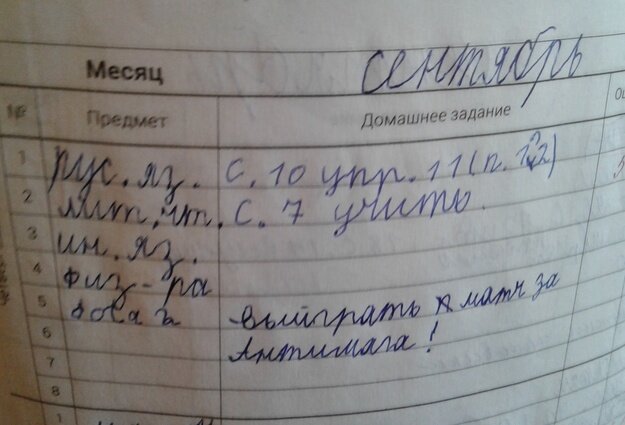 Месяц сентябрь
№ Предмет Домашнее задание
1 рус. яз. с. 10 упр. 11 (п. 1,2)
2 лит. чт. с. 7 учить.
3 ин. яз.
4 физ-ра
5 дота 2 выйграть матч за
6 Антимага!
7
8
1